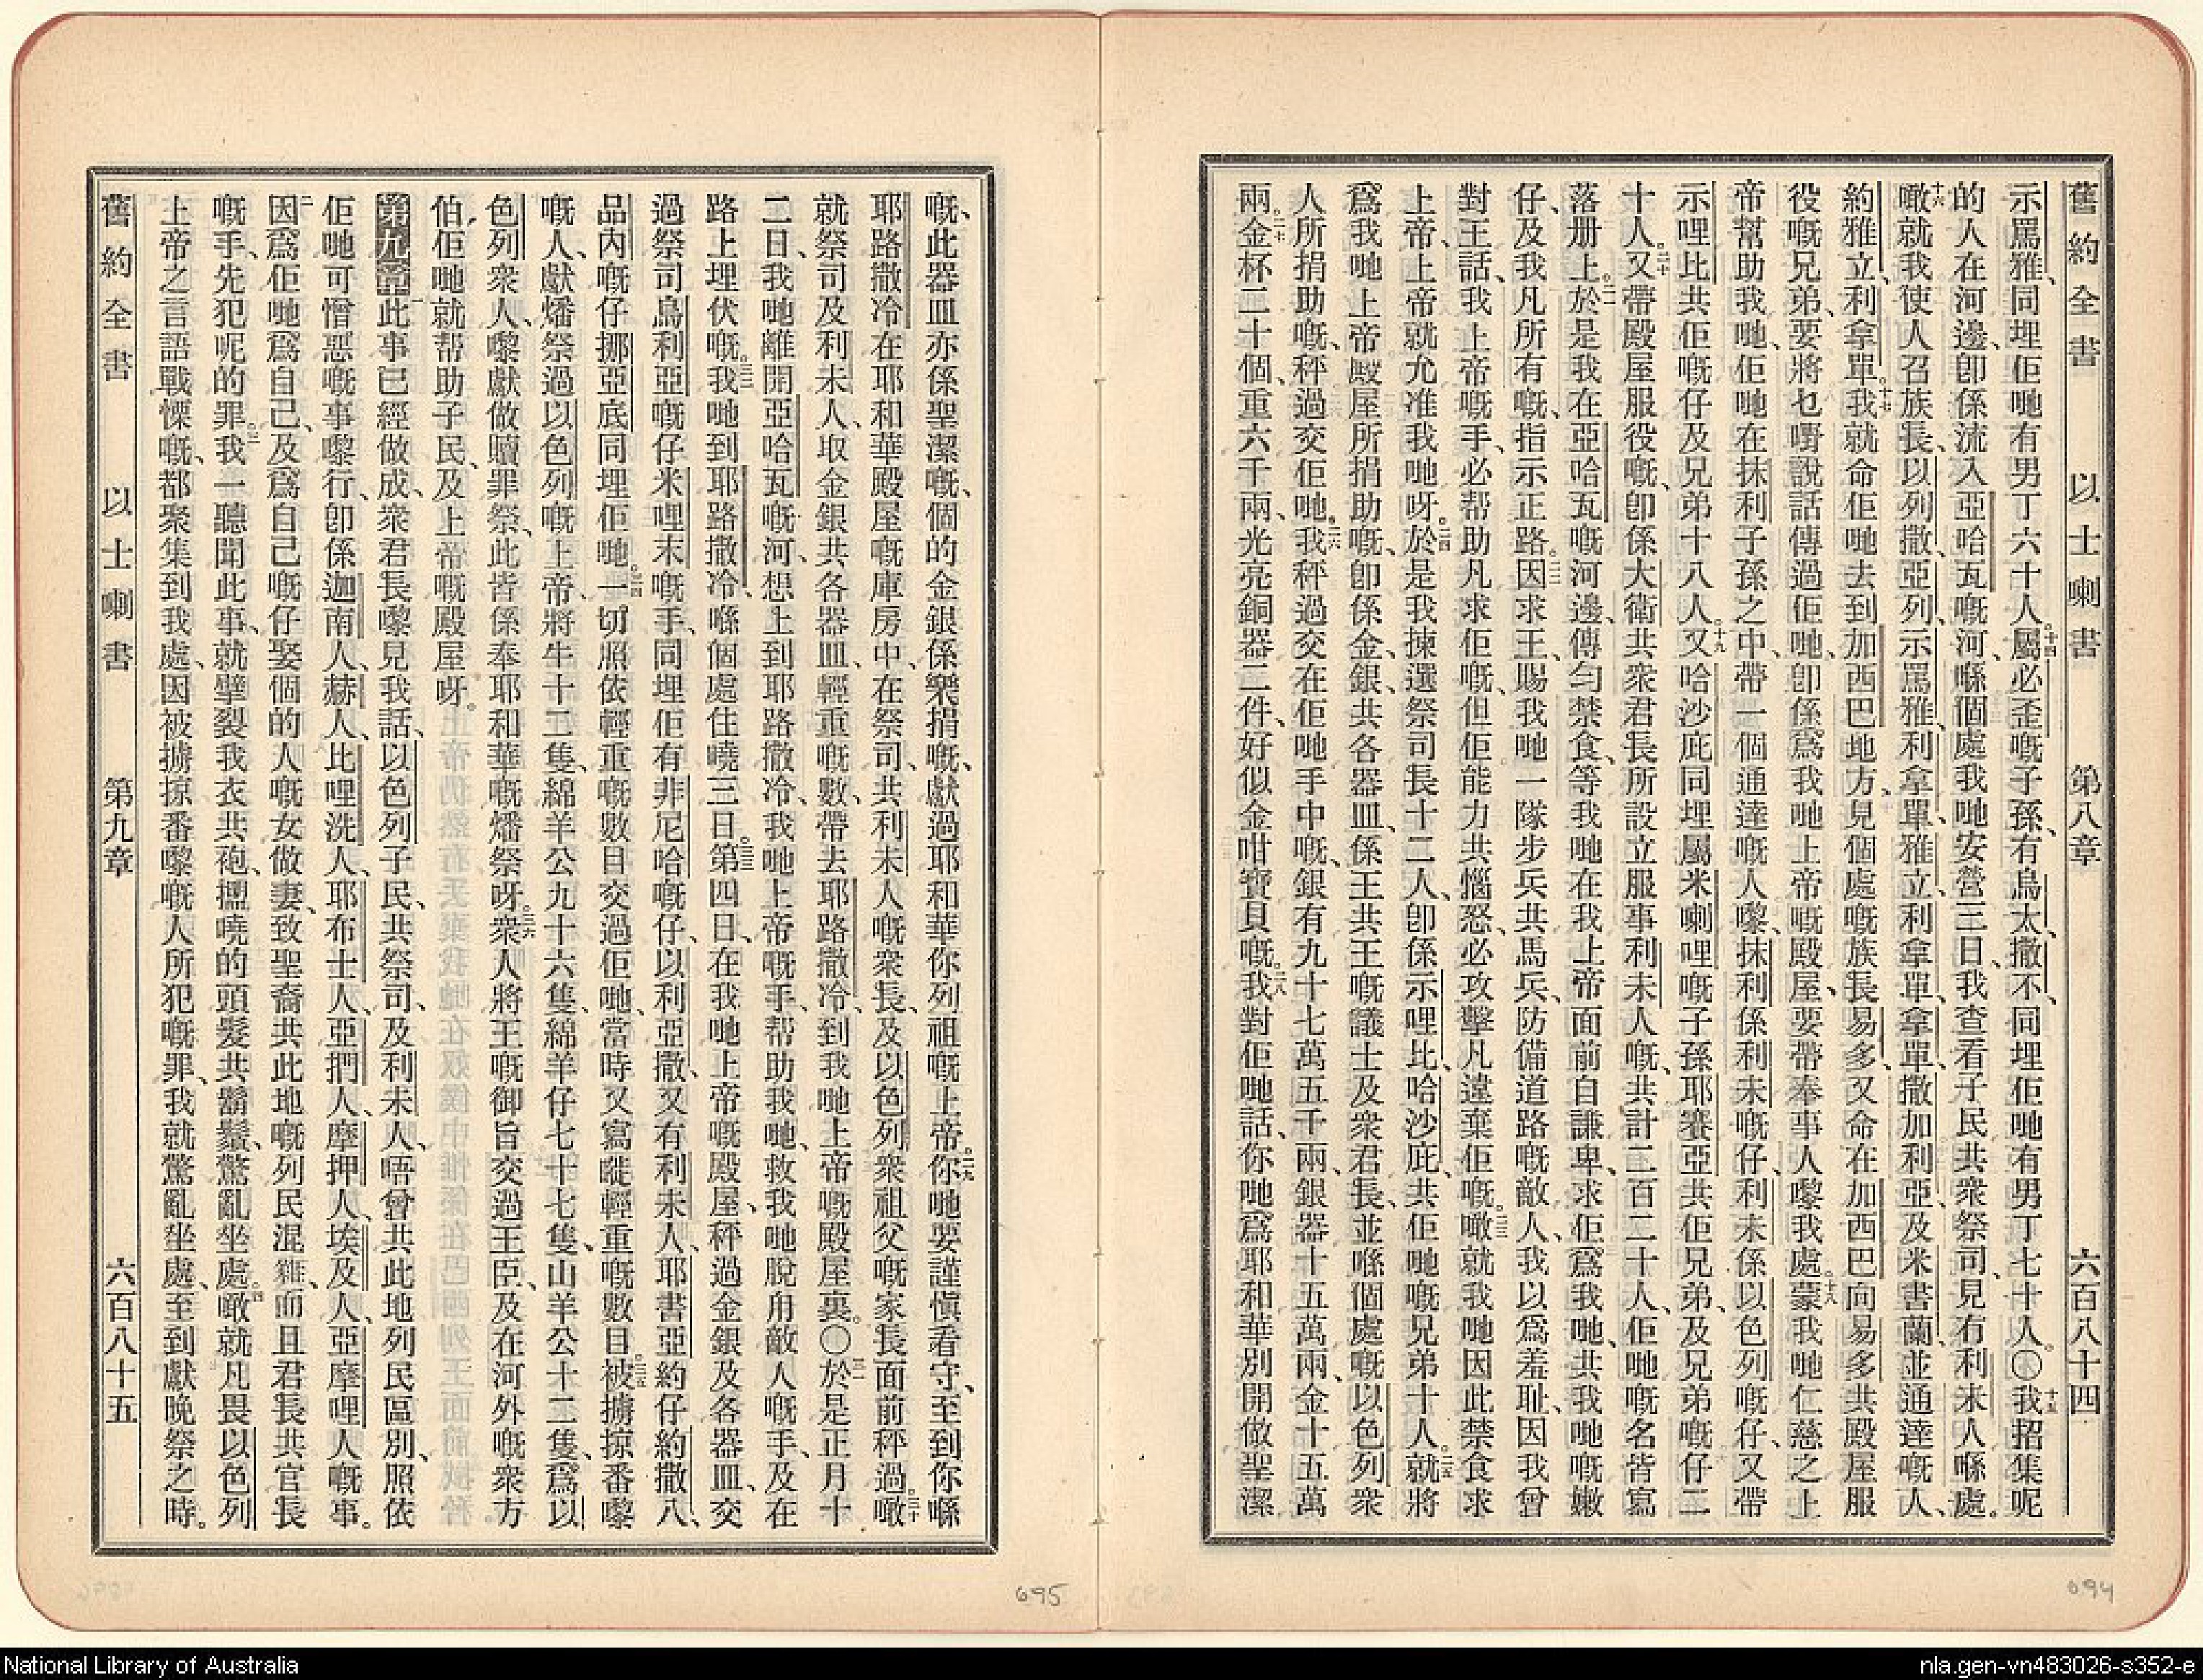 舊約全書　以士喇書　第八章　六百八十四
示罵雅、同埋佢哋有男丁六十人。十四屬必歪嘅子孫、有烏太、撒不、同埋佢哋有男丁七十人。〇十五我招集呢
的人在河邊、卽係流入亞哈瓦嘅河、喺個處我哋安營三日、我查看子民共衆祭司、見有利未人喺處。
十六噉就我使人召族長、以列撒、亞列、示罵雅、利拿單、雅立、利拿單、拿單、撒加利亞、及米書蘭、並通達嘅人、
約雅立、利拿單。十七我就命佢哋去到加西巴地方、見個處嘅族長易多、又命在加西巴向易多共殿屋服
役嘅兄弟、要將乜嘢說話傳過佢哋、卽係爲我哋上帝嘅殿屋、要帶奉事人嚟我處。十八蒙我哋仁慈之上
帝幫助我哋、佢哋在抹利子孫之中、帶一個通達嘅人嚟、抹利係利未嘅仔、利未係以色列嘅仔、又帶
示哩比共佢嘅仔及兄弟十八人。十九又哈沙庇同埋屬米喇哩嘅子孫耶賽亞共佢兄弟、及兄弟嘅仔二
十人。二十又帶殿屋服役嘅、卽係大衛共衆君長所設立服事利未人嘅、共計二百二十人、佢哋嘅名皆寫
落册上。二一於是我在亞哈瓦嘅河邊、傳勻禁食、等我哋在我上帝面前自謙卑、求佢爲我哋、共我哋嘅嫩
仔、及我凡所有嘅、指示正路。二二因求王、賜我哋一隊步兵共馬兵、防備道路嘅敵人、我以爲羞耻、因我曾
對王話、我上帝嘅手、必帮助凡求佢嘅、但佢能力共惱怒、必攻擊凡違棄佢嘅。二三噉就我哋因此禁食求
上帝、上帝就允准我哋呀。二四於是我揀選祭司長十二人、卽係示哩比、哈沙庇、共佢哋嘅兄弟十人。二五就將
爲我哋上帝殿屋所捐助嘅、卽係金、銀、共各器皿、係王共王嘅議士及衆君長、並喺個處嘅以色列衆
人所捐助嘅、秤過交佢哋。二六我秤過交在佢哋手中嘅、銀有九十七萬五千兩、銀器十五萬兩、金十五萬
兩。二七金杯二十個、重六千兩、光亮銅器二件、好似金咁寶貝嘅。二八我對佢哋話、你哋爲耶和華別開做聖潔
694
嘅、此器皿亦係聖潔嘅、個的金銀、係樂捐嘅、獻過耶和華你列祖嘅上帝。二九你哋要謹愼看守、至到你喺
耶路撒冷在耶和華殿屋嘅庫房中、在祭司、共利未人嘅衆長、及以色列衆祖父嘅家長面前秤過。三十噉
就祭司及利未人、取金銀共各器皿、輕重嘅數、帶去耶路撒冷、到我哋上帝嘅殿屋裏。〇三一於是正月十
二日、我哋離開亞哈瓦嘅河、想上到耶路撒冷、我哋上帝嘅手、帮助我哋、救我哋脫用敵人嘅手、及在
路上埋伏嘅。三二我哋到耶路撒冷、喺個處住曉三日。三三第四日、在我哋上帝嘅殿屋、秤過金銀及各器皿、交
過祭司烏利亞嘅仔米哩末嘅手、同埋佢有非尼哈嘅仔、以利亞撒、又有利未人、耶書亞約仔約撒八、
品內嘅仔挪亞底同埋佢哋。三四一切照依輕重嘅數目交過佢哋、當時又寫嘥輕重嘅數目。三五被擄掠番嚟
嘅人、獻燔祭過以色列嘅上帝、將牛十二隻、綿羊公九十六隻、綿羊仔七十七隻、山羊公十二隻、爲以
色列衆人、嚟獻做贖罪祭、此皆係奉耶和華嘅燔祭呀。三六衆人將王嘅御旨交過王臣、及在河外嘅衆方
伯、佢哋就帮助子民、及上帝嘅殿屋呀。
第九章一此事已經做成、衆君長嚟見我話、以色列子民、共祭司、及利未人、唔曾共此地列民區別、照依
佢哋可憎惡嘅事嚟行、卽係迦南人、赫人、比哩洗人、耶布士人、亞捫人、摩押人、埃及人、亞摩哩人嘅事。
二因爲佢哋爲自己、及爲自己嘅仔娶個的人嘅女做妻、致聖裔共此地嘅列民混雜、而且君長共官長
嘅手、先犯呢的罪。三我一聽聞此事、就擘裂我衣共袍、搵曉的頭髮共鬍鬚、驚亂坐處。四噉就凡畏以色列
上帝之言語戰慄嘅、都聚集到我處、因被擄掠番嚟嘅人所犯嘅罪、我就驚亂坐處、至到獻晚祭之時。
舊約全書　以士喇書　第九章　六百八十五
695
National Library of Australia
nla.gen-vn483026-s352-e